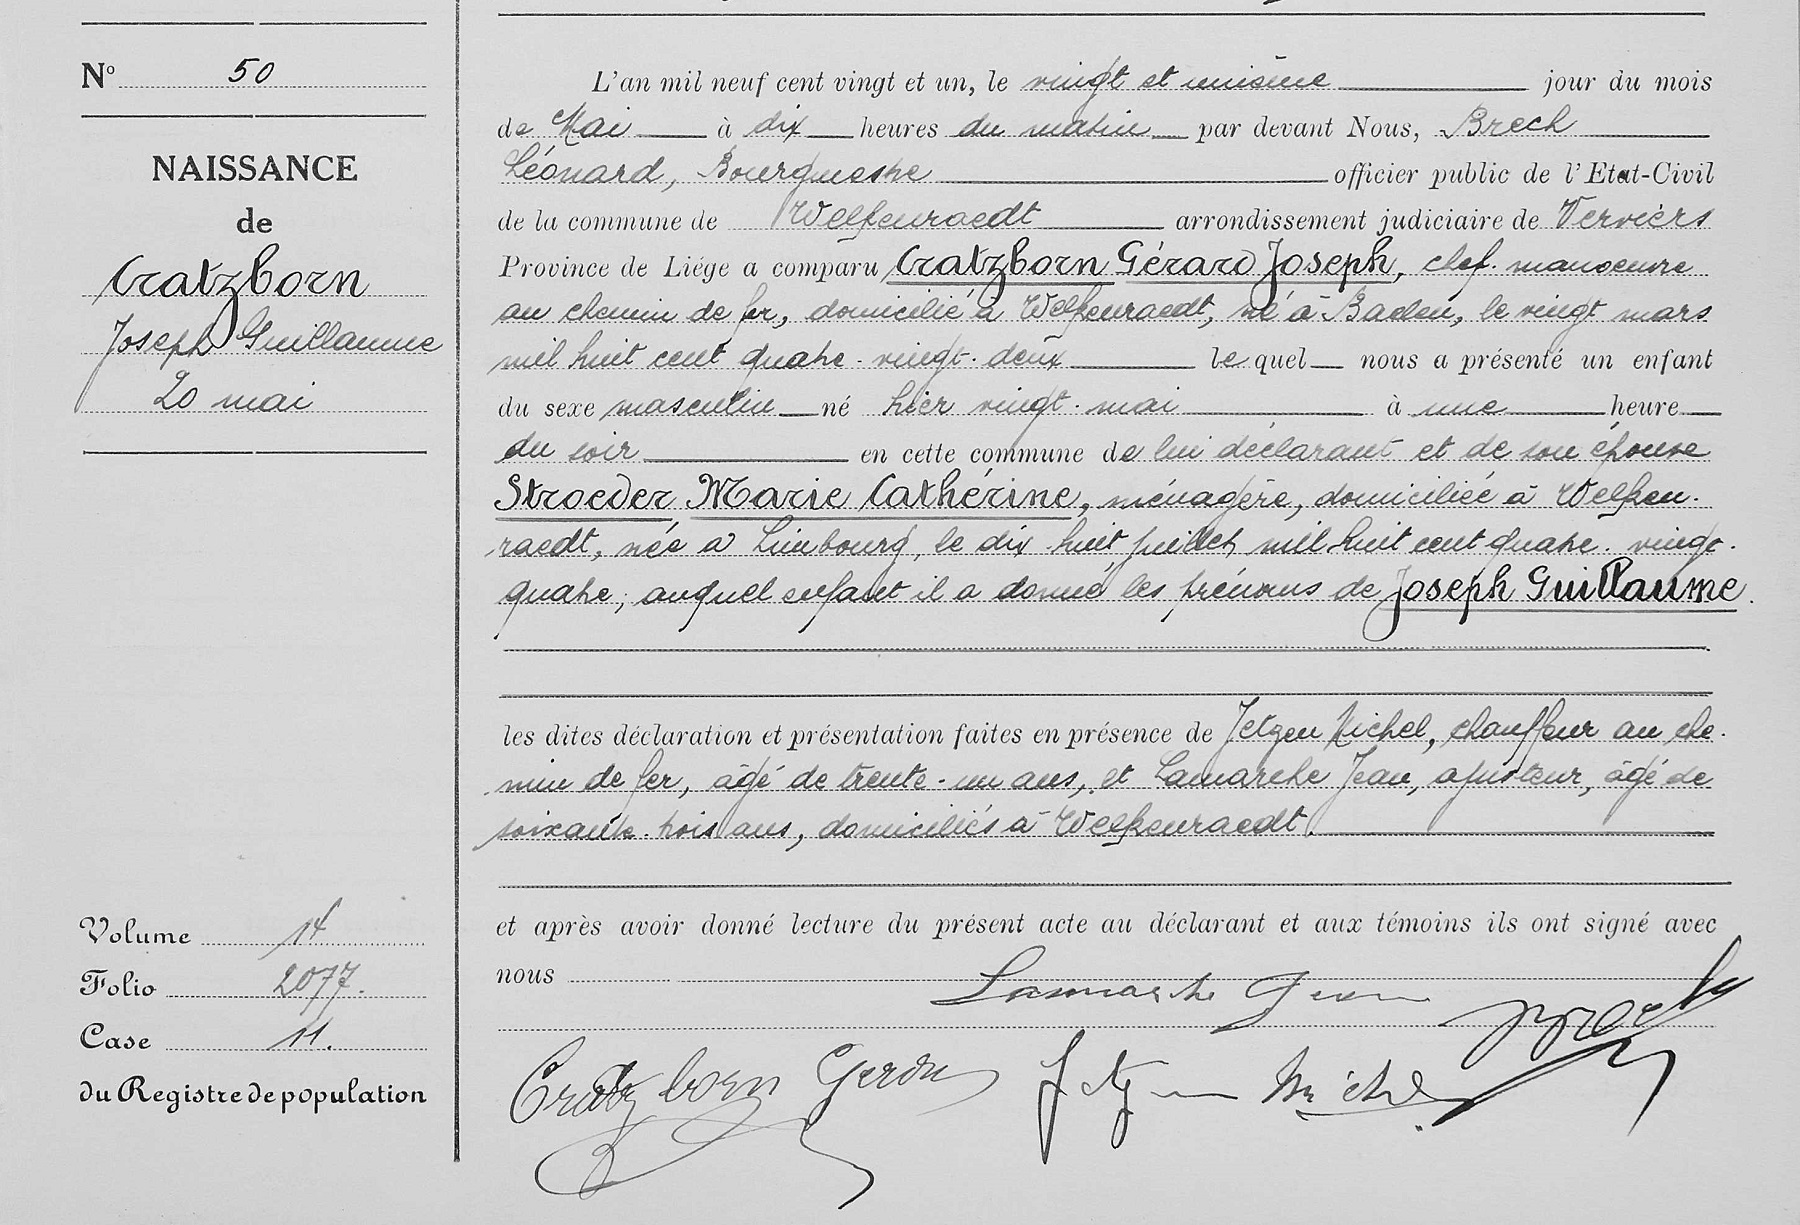 N° 50
NAISSANCE
de
Cratzborn
Joseph Guillaume
20 mai
Volume 14
Folio 2077.
Case 11.
du Registre de population
L'an mil neuf cent vingt et un, le vingt et unième jour du mois
de Mai à dix heures du matin par devant Nous, Brech
Léonard, Bourgmestre officier public de l'Etat-Civil
de la commune de Welkenraedt arrondissement judiciaire de Verviers
Province de Liége a comparu Cratzborn Gérard Joseph, chef-manoeuvre
au chemin de fer, domicilié à Welkenraedt, né à Baelen, le vingt mars
mil huit cent quatre-vingt-deux le quel nous a présenté un enfant
du sexe masculin né hier vingt-mai à une heure
du soir en cette commune de lui déclarant et de son épouse
Stroeder Marie Cathérine, ménagère, domiciliée à Welken-
raedt, née à Limbourg, le dix-huit juillet mil huit cent quatre-vingt-
quatre; auquel enfant il a donné les prénoms de Joseph Guillaume.
les dites déclaration et présentation faites en présence de Jetzen Michel, chauffeur au che-
min de fer, âgé de trente-un ans, et Lamarche Jean, ajusteur, âgé de
soixante-trois ans, domiciliés à Welkenraedt.
et après avoir donné lecture du présent acte au déclarant et aux témoins ils ont signé avec
nous
Lamarche Jean
Brech
Cratzborn Gerard Jetzen Michel